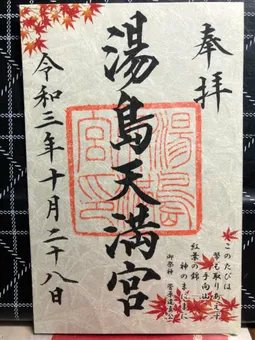 奉拝
湯島天満宮
令和三年十月二十八日
このたびは
幣も取りあへず
手向山
紅葉の錦
神のまにまに
御祭神 菅原道真公